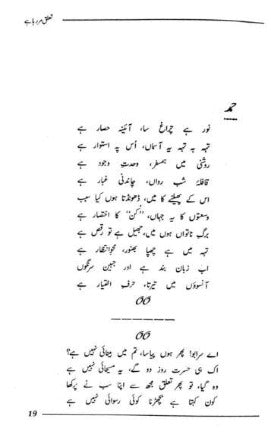 تعلق مر رہا ہے
حمد
نور ہے چراغ سا، آئینہ حصار ہے
تہہ بہ تہہ یہ آسماں، اُس پہ استوار ہے
روشنی میں ہمسفر، وحدتِ وجود ہے
قافلۂ شب رواں، چاندنی غبار ہے
اس کے پھیلنے کا میں، ڈھونڈتا ہوں کیا سبب
وسعتوں کا یہ جہاں، "کُن" کا اختصار ہے
برگِ ناتواں ہوں میں، جھیل ہے تو رقص ہے
تہہ میں ہے چھپا بھنور، محوِ انتظار ہے
اب زبان بند ہے اور جبین سرنگوں
آنسوؤں میں تیرتا، حرف
ہے
اے سرابو! پھر ہوں پیاسا، تم میں بینائی نہیں ہے؟
اک ہی حسرت روز دو گے، یہ مسیحائی نہیں ہے
وہ گیا، تو پھر تعلق مجھ سے اپنا سب نے پرکھا
کون کہتا ہے بچھڑنا کوئی رسوائی نہیں ہے
19